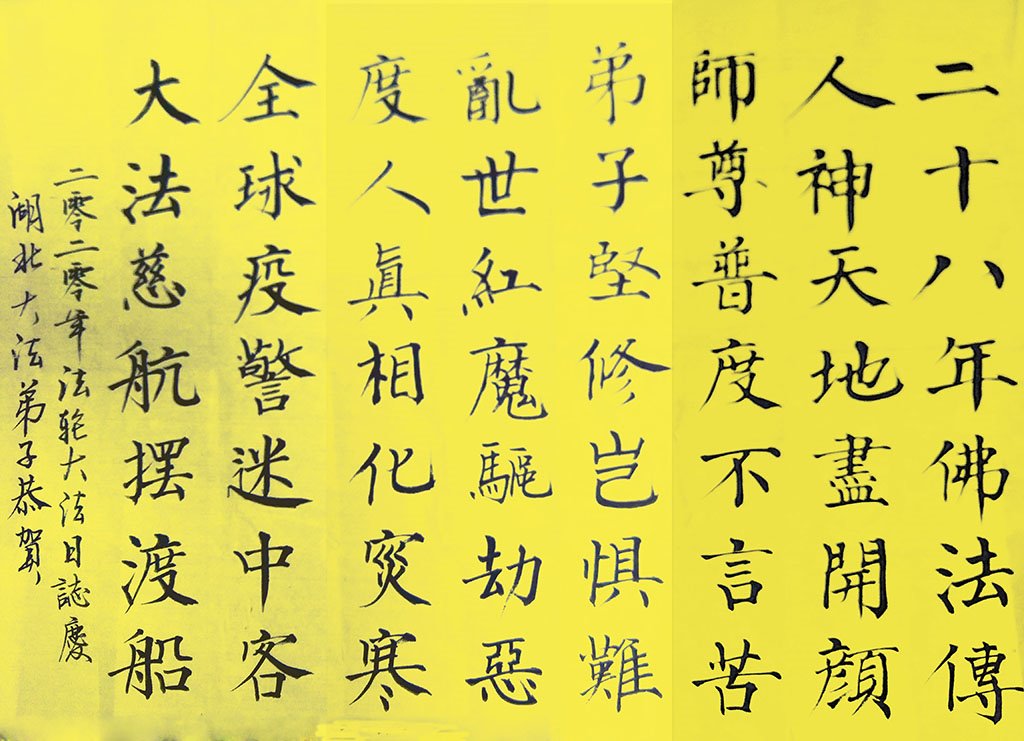 二十八年佛法傳
人神天地盡開顔
師尊普度不言苦
弟子堅修豈惧難
亂世紅魔驅劫惡
度人眞相化災寒
全球疫警迷中客
大法慈航摆渡船
二零二零年法輪大法日誌慶
湖北大法弟子恭賀